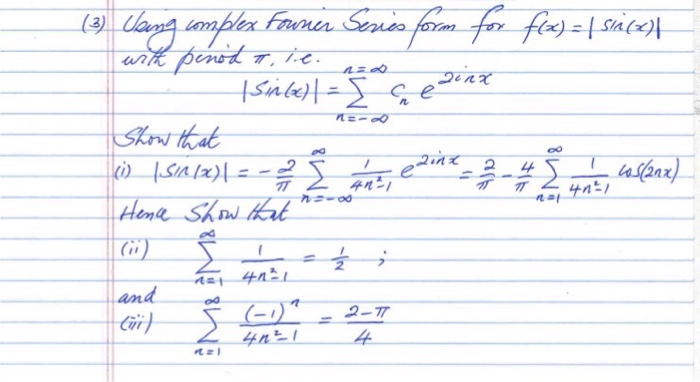 (3) Using complex Fourier Series form for f(x) = |sin(x)|
with period π, i.e.
|Sin(x)| = ∑_{n=-∞}^{n=∞} c_n e^{2inx}
Show that
(i) |Sin(x)| = -2/π ∑_{n=-∞}^{∞} 1/(4n²-1) e^{2inx} = 2/π - 4/π ∑_{n=1}^{∞} 1/(4n²-1) cos(2nx)
Hence Show that
(ii) ∑_{n=1}^{∞} 1/(4n²-1) = 1/2 ;
and
(iii) ∑_{n=1}^{∞} (-1)^n/(4n²-1) = (2-π)/4